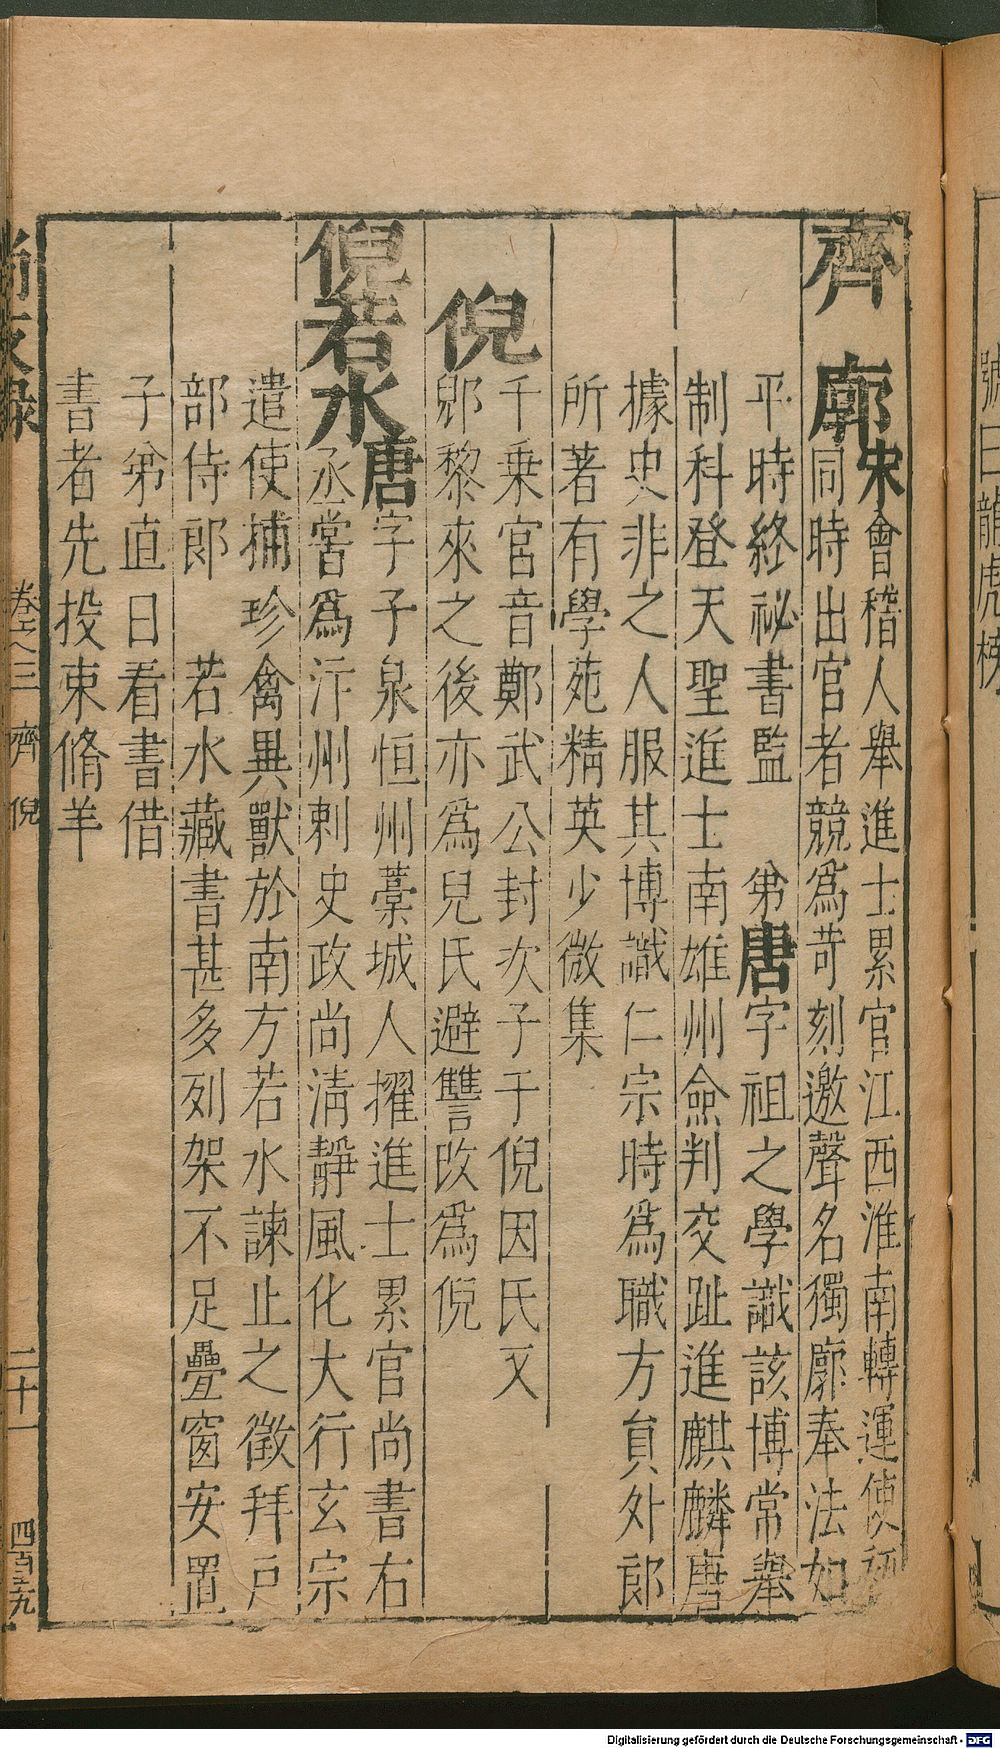 號曰龍虎榜
齊廓宋會稽人舉進士累官江西淮南轉運使初
同時出官者競爲苛刻邀聲名獨廓奉法如
平時終祕書監　弟唐字祖之學識該博常舉
制科登天聖進士南雄州僉判交趾進麒麟唐
據史非之人服其博識仁宗時爲職方員外郎
所著有學苑精英少微集
倪
千乗宮音鄭武公封次子于倪因氏又
郳黎來之後亦爲兒氏避讐改爲倪
倪若水唐字子泉恒州藁城人擢進士累官尚書右
丞嘗爲汴州刺史政尚淸靜風化大行玄宗
遣使捕珍禽異獸於南方若水諫止之徵拜戶
部侍郎　若水藏書甚多列架不足疊窗安置
子弟直日看書借
書者先投束脩羊
尚友錄　卷之三　齊　倪　二十一　四百五九
Digitalisierung gefördert durch die Deutsche Forschungsgemeinschaft - DFG